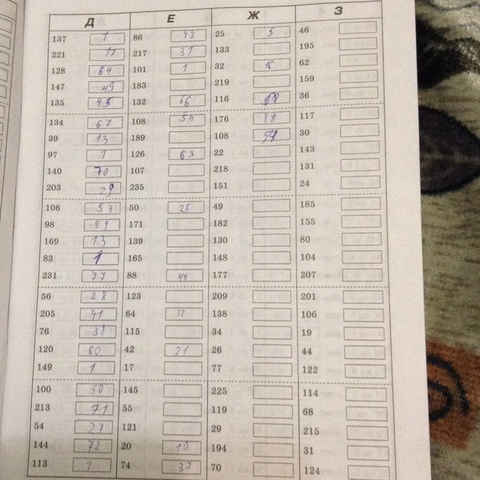 Д Е Ж З
137 1 86 43 25 5 46
221 17 217 31 133 195
128 64 101 1 32 16 62
147 49 183 219 159
135 45 132 66 116 58 36
134 67 108 54 176 88 117
39 13 189 108 54 30
97 1 126 63 22 143
140 70 107 218 131
203 29 235 151 24
106 53 50 25 49 185
98 49 171 182 155
169 13 139 130 80
83 1 165 148 104
231 77 88 44 177 207
56 28 123 209 201
205 41 64 32 138 106
76 38 115 34 19
120 60 42 21 26 44
149 1 17 77 122
100 50 145 225 114
213 71 55 119 68
54 27 121 29 215
144 72 20 10 194 31
113 1 74 37 70 124